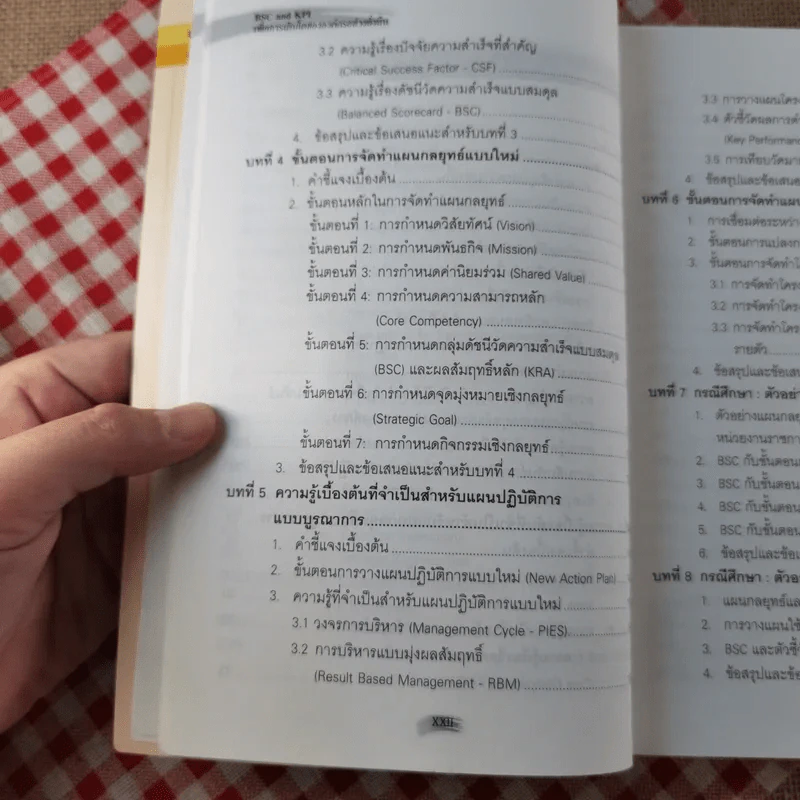 BSC and KPI
3.2 ความรู้เรื่องปัจจัยความสำเร็จที่สำคัญ
(Critical Success Factor - CSF)
3.3 ความรู้เรื่องดัชนีวัดความสำเร็จแบบสมดุล
(Balanced Scorecard - BSC)
4. ข้อสรุปและข้อเสนอแนะสำหรับบทที่ 3
บทที่ 4 ขั้นตอนการจัดทำแผนกลยุทธ์แบบใหม่
1. คำชี้แจงเบื้องต้น
2. ขั้นตอนหลักในการจัดทำแผนกลยุทธ์
ขั้นตอนที่ 1: การกำหนดวิสัยทัศน์ (Vision)
ขั้นตอนที่ 2: การกำหนดพันธกิจ (Mission)
ขั้นตอนที่ 3: การกำหนดค่านิยมร่วม (Shared Value)
ขั้นตอนที่ 4: การกำหนดความสามารถหลัก
(Core Competency)
ขั้นตอนที่ 5: การกำหนดกลุ่มดัชนีวัดความสำเร็จแบบสมดุล
(BSC) และผลสัมฤทธิ์หลัก (KRA)
ขั้นตอนที่ 6: การกำหนดจุดมุ่งหมายเชิงกลยุทธ์
(Strategic Goal)
ขั้นตอนที่ 7: การกำหนดกิจกรรมเชิงกลยุทธ์
3. ข้อสรุปและข้อเสนอแนะสำหรับบทที่ 4
บทที่ 5 ความรู้เบื้องต้นที่จำเป็นสำหรับแผนปฏิบัติการ
แบบบูรณาการ
1. คำชี้แจงเบื้องต้น
2. ขั้นตอนการวางแผนปฏิบัติการแบบใหม่ (New Action Plan)
3. ความรู้ที่จำเป็นสำหรับแผนปฏิบัติการแบบใหม่
3.1 วงจรการบริหาร (Management Cycle - PIES)
3.2 การบริหารแบบมุ่งผลสัมฤทธิ์
(Result Based Management - RBM)
xxii
3.3 การวางแผนโครง
3.4 ตัวชี้วัดผลการดำ
(Key Performance
3.5 การเทียบวัดมา
4. ข้อสรุปและข้อเสนอ
บทที่ 6 ขั้นตอนการจัดทำแผน
1. การเชื่อมต่อระหว่าง
2. ขั้นตอนการแปลงก
3. ขั้นตอนการจัดทำโ
3.1 การจัดทำโครง
3.2 การจัดทำโครง
3.3 การจัดทำโครง
รายตัว
4. ข้อสรุปและข้อเสน
บทที่ 7 กรณีศึกษา : ตัวอย่า
1. ตัวอย่างแผนกลยุ
หน่วยงานราชกา
2. BSC กับขั้นตอน
3. BSC กับขั้นตอน
4. BSC กับขั้นตอน
5. BSC กับขั้นตอน
6. ข้อสรุปและข้อเ
บทที่ 8 กรณีศึกษา : ตัวอ
1. แผนกลยุทธ์และ
2. การวางแผนใช้
3. BSC และตัวชี้
4. ข้อสรุปและข้อ